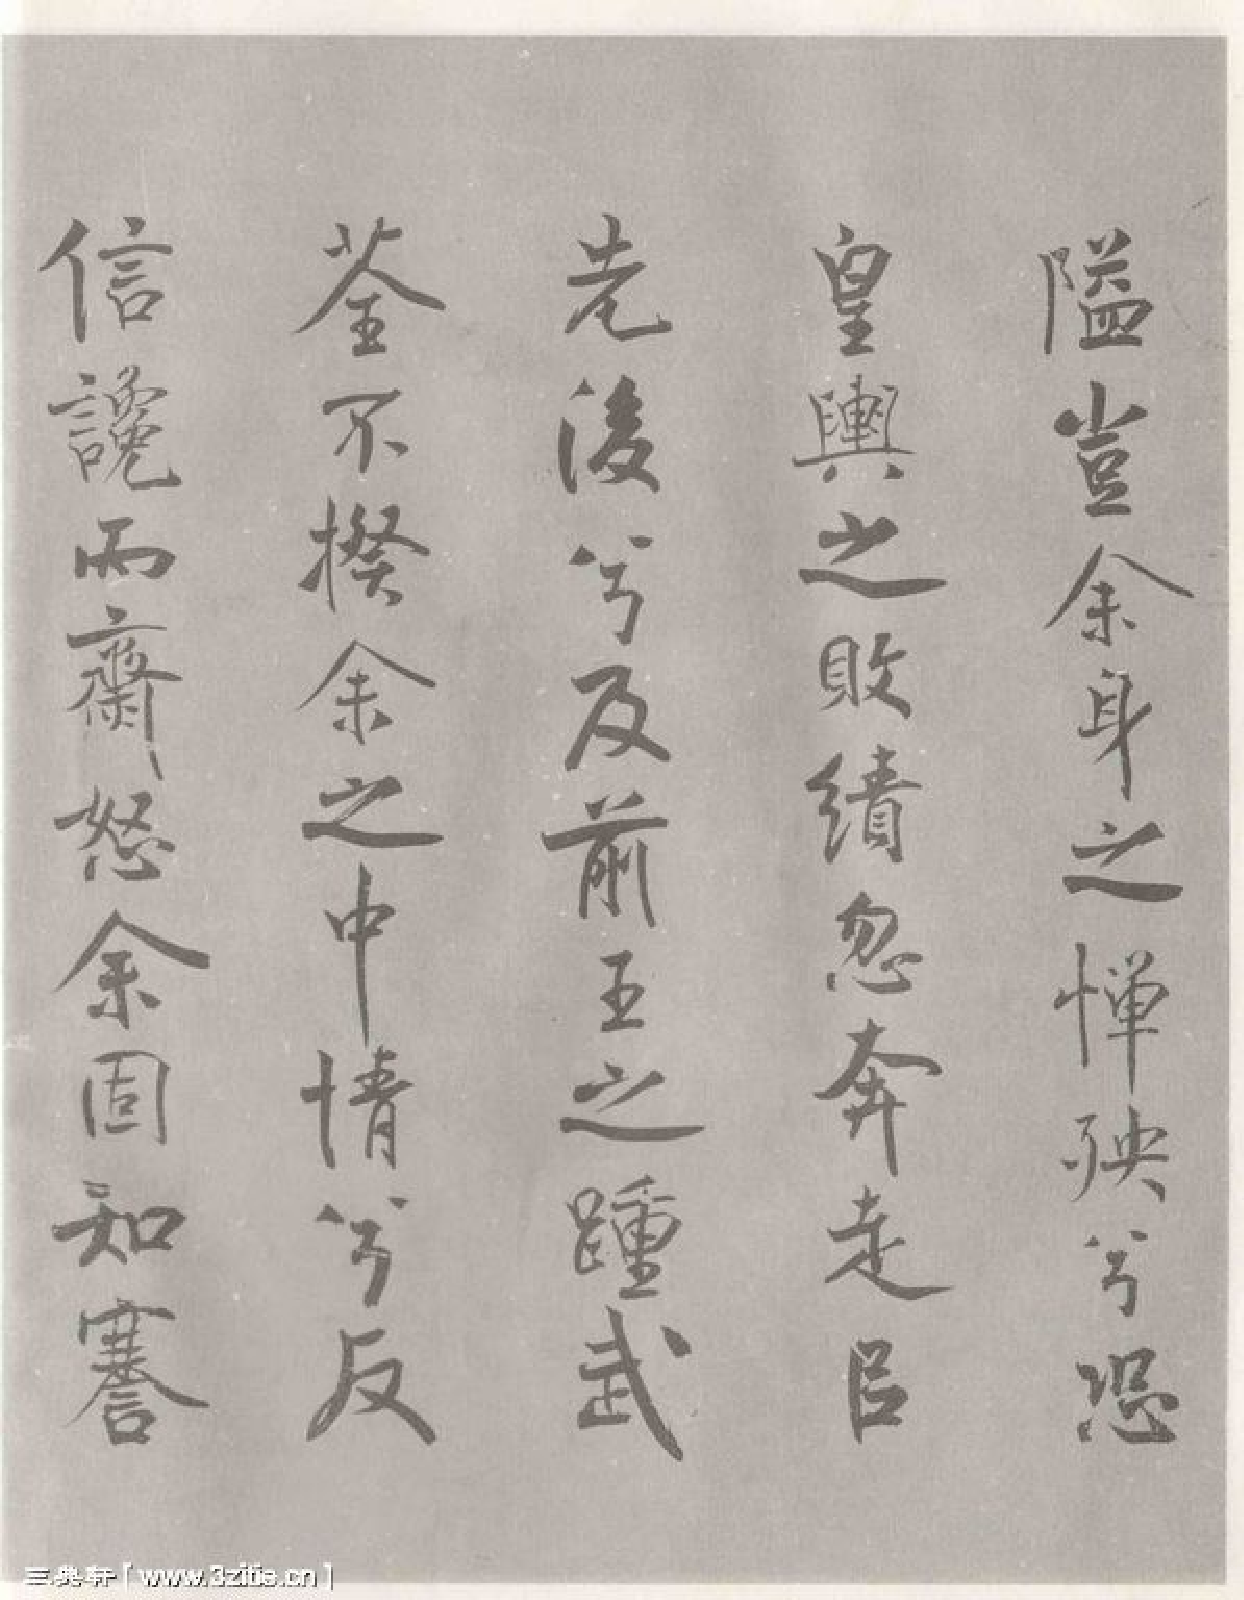 隘豈余身之惮殃兮恐
皇輿之敗績忽奔走㠯
先後兮及前王之踵武
荃不揆余之中情兮反
信讒而齌怒余固知謇
三典轩「www.3zitie.cn」